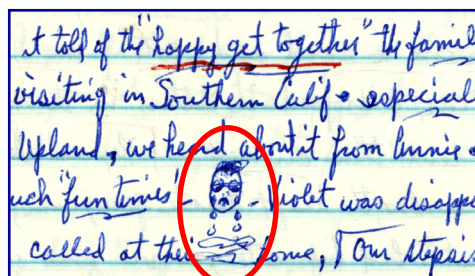 it told of the "happy get together" the famil
visiting in Southern Calif & especial
Upland, we heard about it from Annie &
uch "fun times" - - Violet was disapp
called at their home, Our stepsis